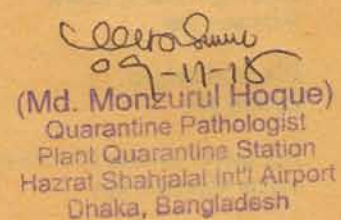 09-11-15
(Md. Monzurul Hoque)
Quarantine Pathologist
Plant Quarantine Station
Hazrat Shahjalal Int'l Airport
Dhaka, Bangladesh